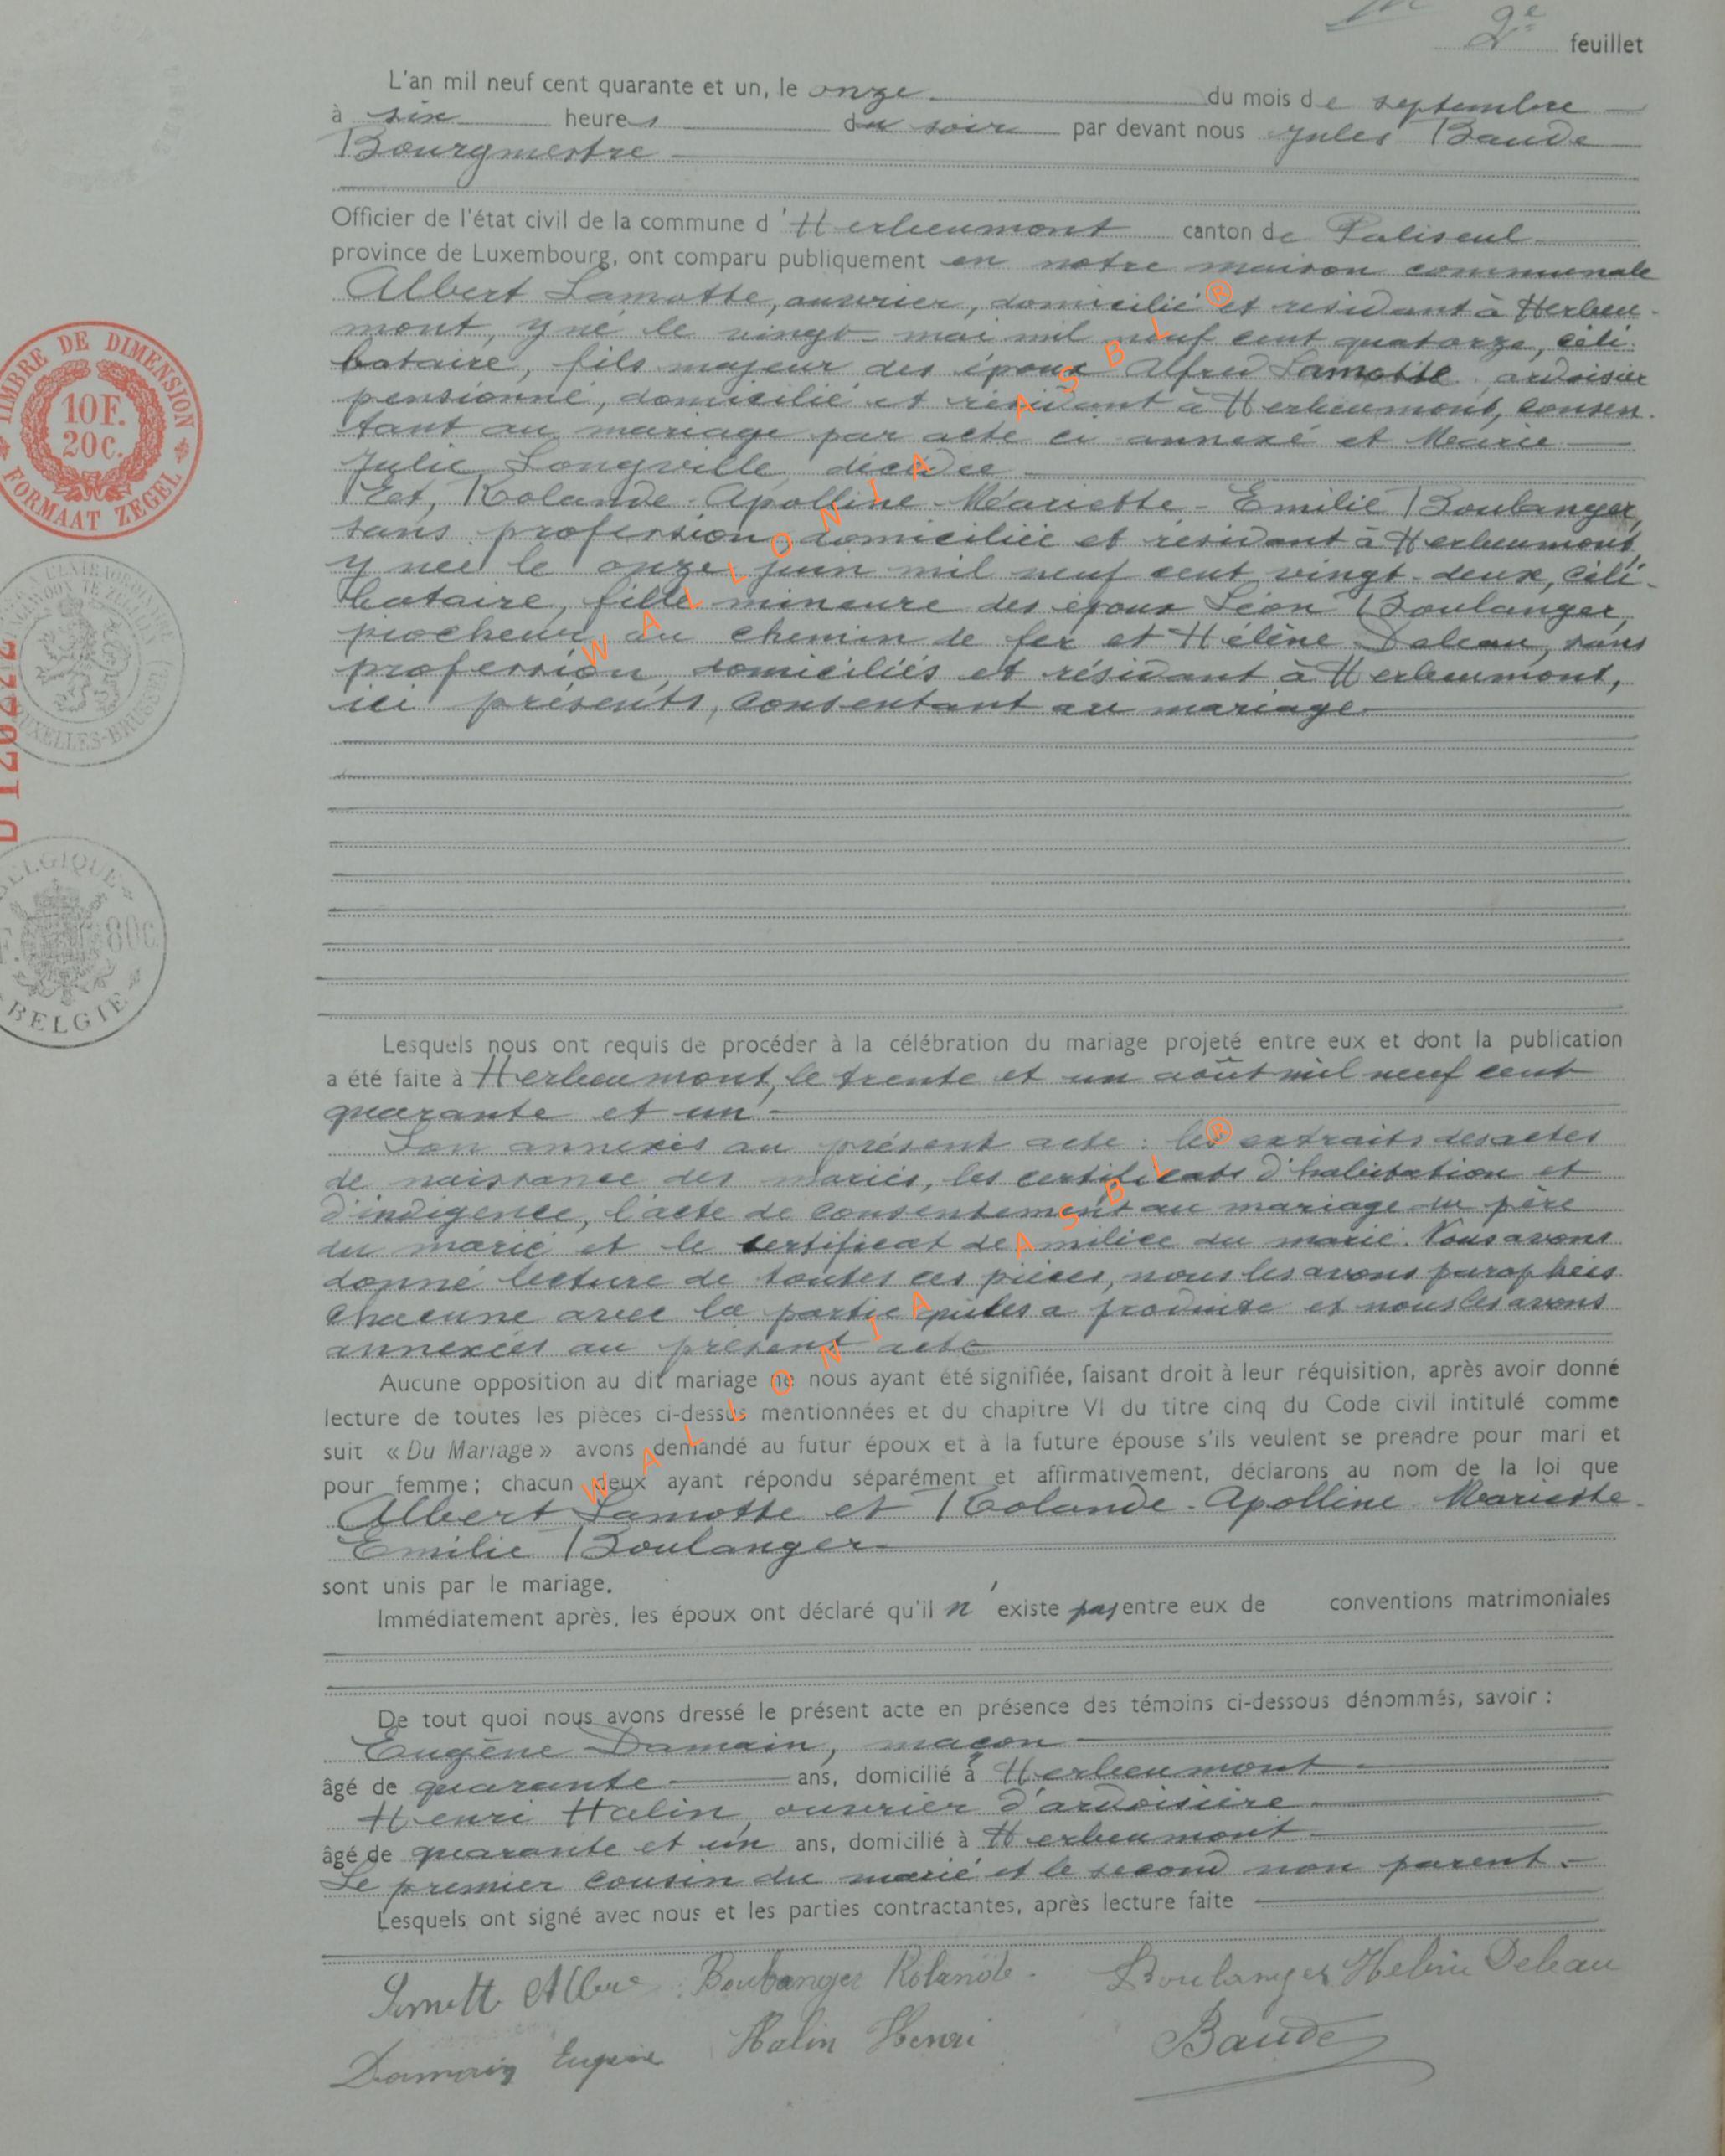 2e feuillet
L'an mil neuf cent quarante et un, le onze du mois de septembre
à six heures du soir par devant nous Jules Baude
Bourgmestre
Officier de l'état civil de la commune d'Herbeumont canton de Paliseul
province de Luxembourg, ont comparu publiquement en notre maison communale
Albert Lamotte, ouvrier, domicilié et résidant à Herbeu-
mont, y né le vingt mai mil neuf cent quatorze, céli-
bataire, fils majeur des époux Alfred Lamotte ardoisier
pensionné, domicilié et résidant à Herbeumont, consen-
tant au mariage par acte ci annexé et Marie
Julie Longville, décédée
Et, Rolande-Apolline-Mariette-Emilie Boulanger,
sans profession, domiciliée et résidant à Herbeumont,
y née le onze juin mil neuf cent vingt-deux, céli-
bataire, fille mineure des époux Léon Boulanger,
piocheur au chemin de fer et Hélène Deleau, sans
profession, domiciliés et résidant à Herbeumont,
ici présents, consentant au mariage
Lesquels nous ont requis de procéder à la célébration du mariage projeté entre eux et dont la publication
a été faite à Herbeumont, le trente et un août mil neuf cent
quarante et un
Son annexés au présent acte : les extraits des actes
de naissance des mariés, les certificats d'habitation et
d'indigence, l'acte de consentement au mariage du père
du marié et le certificat de milice du marié. Nous avons
donné lecture de toutes ces pièces, nous les avons paraphées
chacune avec la partie qui les a produite et nous les avons
annexées au présent acte
Aucune opposition au dit mariage ne nous ayant été signifiée, faisant droit à leur réquisition, après avoir donné
lecture de toutes les pièces ci-dessus mentionnées et du chapitre VI du titre cinq du Code civil intitulé comme
suit « Du Mariage » avons demandé au futur époux et à la future épouse s'ils veulent se prendre pour mari et
pour femme; chacun deux ayant répondu séparément et affirmativement, déclarons au nom de la loi que
Albert Lamotte et Rolande-Apolline-Mariette-
Emilie Boulanger
sont unis par le mariage.
Immédiatement après, les époux ont déclaré qu'il n'existe pas entre eux de conventions matrimoniales
De tout quoi nous avons dressé le présent acte en présence des témoins ci-dessous dénommés, savoir :
Eugène Damain, maçon
âgé de quarante ans, domicilié à Herbeumont
Henri Halin, ouvrier d'ardoisière
âgé de quarante et un ans, domicilié à Herbeumont
Le premier cousin du marié et le second non parent.
Lesquels ont signé avec nous et les parties contractantes, après lecture faite
Boulanger Rolande Boulanger Helène Deleau
Damain Eugène Halin Henri Baude
TIMBRE DE DIMENSION
10F.
20C.
FORMAAT ZEGEL
BRUXELLES-BRUSSEL
BELGIQUE
80C
BELGIE
WALLONIA ASBL ®
WALLONIA ASBL ®